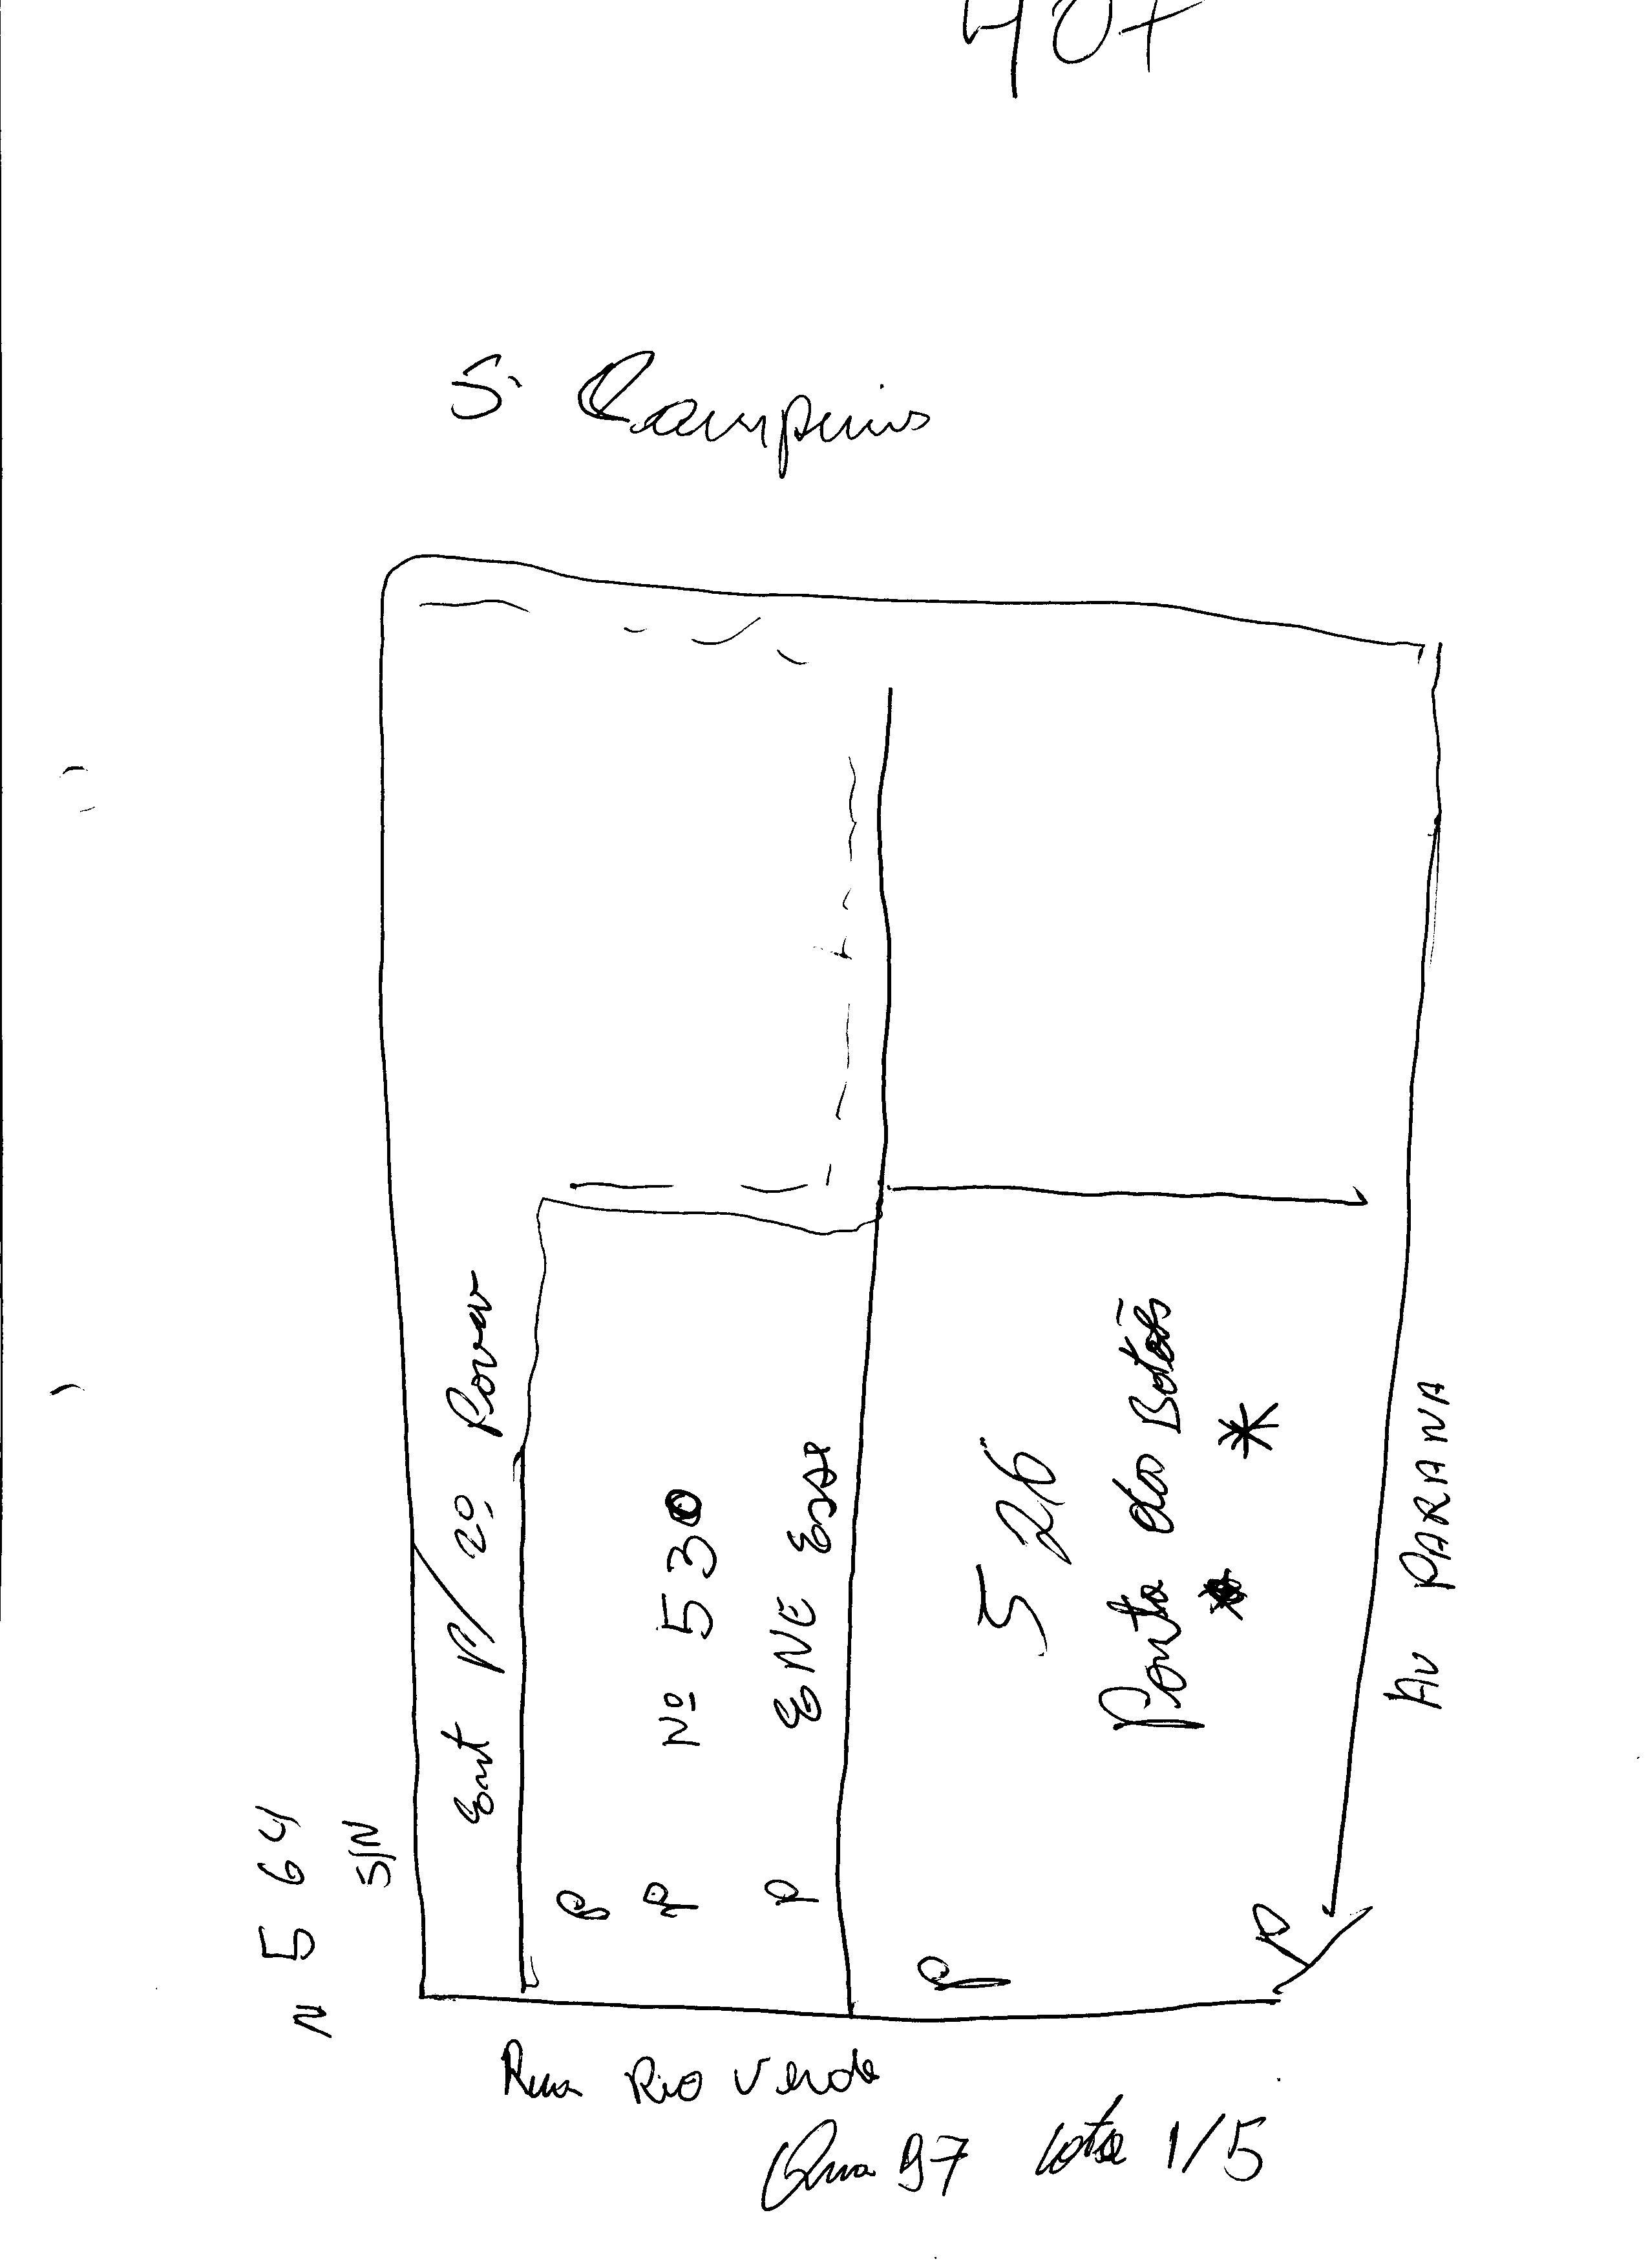 407
S. Campinas
Ent P/ 2º Pavm
Nº 530
ENE Esse
526
Ponto dos Botões
Av PARANA
N 564
S/N
P
P
P
P
P
Rua Rio Verde
Qua 97 Lote 1/5